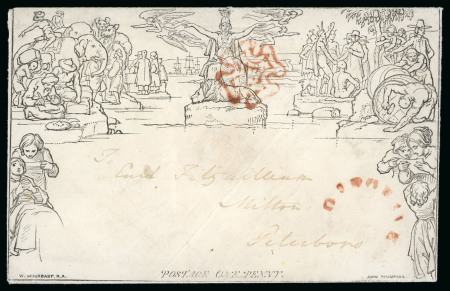 To
Earl Fitzwilliam
Milton
Peterboro
POSTAGE ONE PENNY.
W. MULREADY, R.A.
JOHN THOMPSON